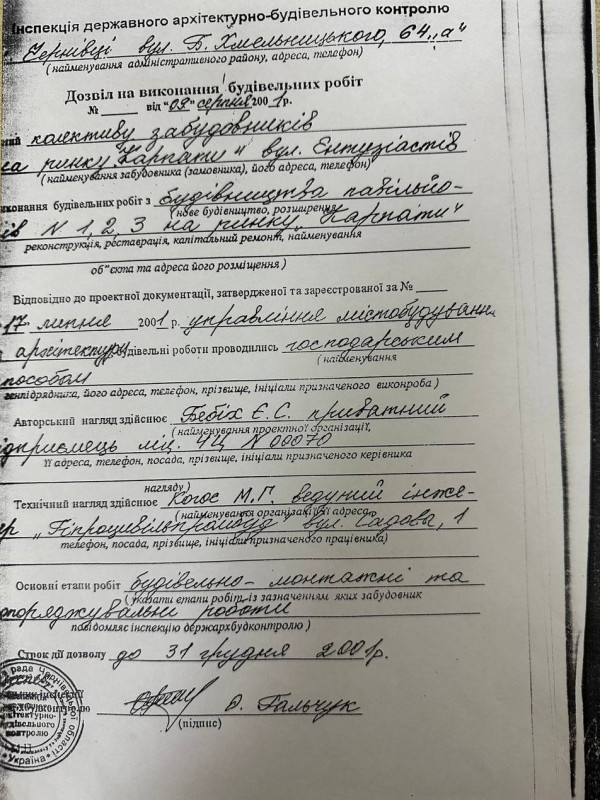 Інспекція державного архітектурно-будівельного контролю
Чернівці вул. Б. Хмельницького, 64 „а"
(найменування адміністративного району, адреса, телефон)
Дозвіл на виконання будівельних робіт
№ ____ від "09" серпня 2001 р.
колективу забудовників
на ринку „Карпати" вул. Ентузіастів
(найменування забудовника (замовника), його адреса, телефон)
иконання будівельних робіт з будівництва павільйо-
ів N 1, 2, 3 на ринку „Карпати"
(нове будівництво, розширення
реконструкція, реставрація, капітальний ремонт, найменування
об"єкта та адреса його розміщення)
Відповідно до проектної документації, затвердженої та зареєстрованої за № ____
17 липня 2001 р. управління містобудування
архітектури будівельні роботи проводились господарським
(найменування
способом
генпідрядника, його адреса, телефон, прізвище, ініціали призначеного виконроба)
Авторський нагляд здійснює Бебіх Є. С. приватний
(найменування проектної організації,
ідприємець ліц. ЧЦ N 00070
її адреса, телефон, посада, прізвище, ініціали призначеного керівника
нагляду)
Технічний нагляд здійснює Когос М. Г. ведучий інже-
(найменування організації її адреса
ер „Гіпроцивільпромбуд" вул. Садова, 1
телефон, посада, прізвище, ініціали призначеного працівника)
Основні етапи робіт будівельно-монтажні та
(указати етапи робіт, із зазначенням яких забудовник
опоряджувальні роботи
повідомляє інспекцію держархбудконтролю)
Строк дії дозволу до 31 грудня 2001 р.
О. Гальчук
(підпис)
рада
області
архітектурно-
будівельного
контролю
Україна